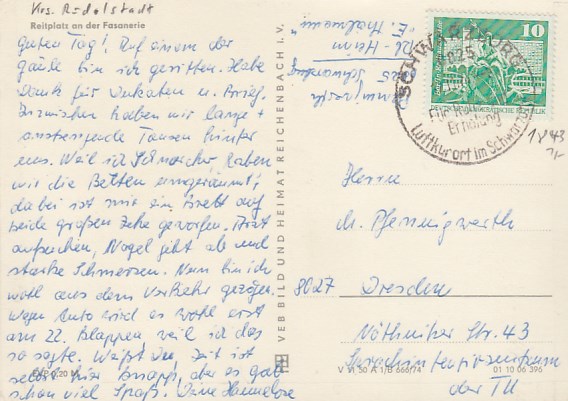 Krs. Rudolstadt
Reitplatz an der Fasanerie
Guten Tag! Auf einem der
gäule bin ich geritten. Habe
Dank für Dukaten u. Brief.
Inzwischen haben wir lange +
anstrengende Touren hinter
uns. Weil ich Schnarcher, haben
wir die Betten umgeräumt,
dabei ist mir ein Brett auf
beide großen Zehe geworfen. Arzt
aufsuchen, Nagel geht ab und
starke Schmerzen. Nun bin ich
wohl aus dem Verkehr gezogen.
Wegen Auto wird es wohl erst
am 22. klappen weil ich das
so sagte. Weißt Du, Zeit ist
selbst hier knapp, aber es gab
schon viel Spaß. Deine Hannelore
EVP 0,20 M
VEB BILD UND HEIMAT REICHENBACH i. V.
-Heim
"E. Thälmann"
6825 Schwarzburg
10
SCHWARZBURG
6825
Für Kur
Erholung
Luftkurort im Schwarzatal
1843
Herrn
M. Pfennigwerth
8027 Dresden
Nöthnitzer Str. 43
Sprachintensivzentrum
der TU
V 11 50 A 1/B 666/74
01 10 06 396